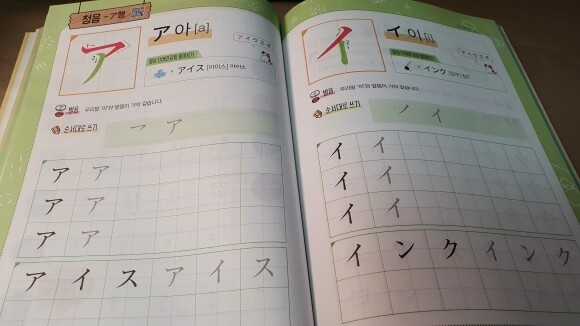 청음 - ア행
ア 아 [a]
アイウエオ
ア
アイス [아이스] 아이스
발음 우리말 '아'와 발음이 거의 같습니다.
순서대로 쓰기
ア
ア ア
ア ア
ア ア
ア イ ス ア イ ス
イ 이 [i]
アイウエオ
イ
インク
발음 우리말 '이'와 발음이 거의 같습니다.
순서대로 쓰기
ノ イ
イ イ
イ イ
イ イ
イ ン ク イ ン ク